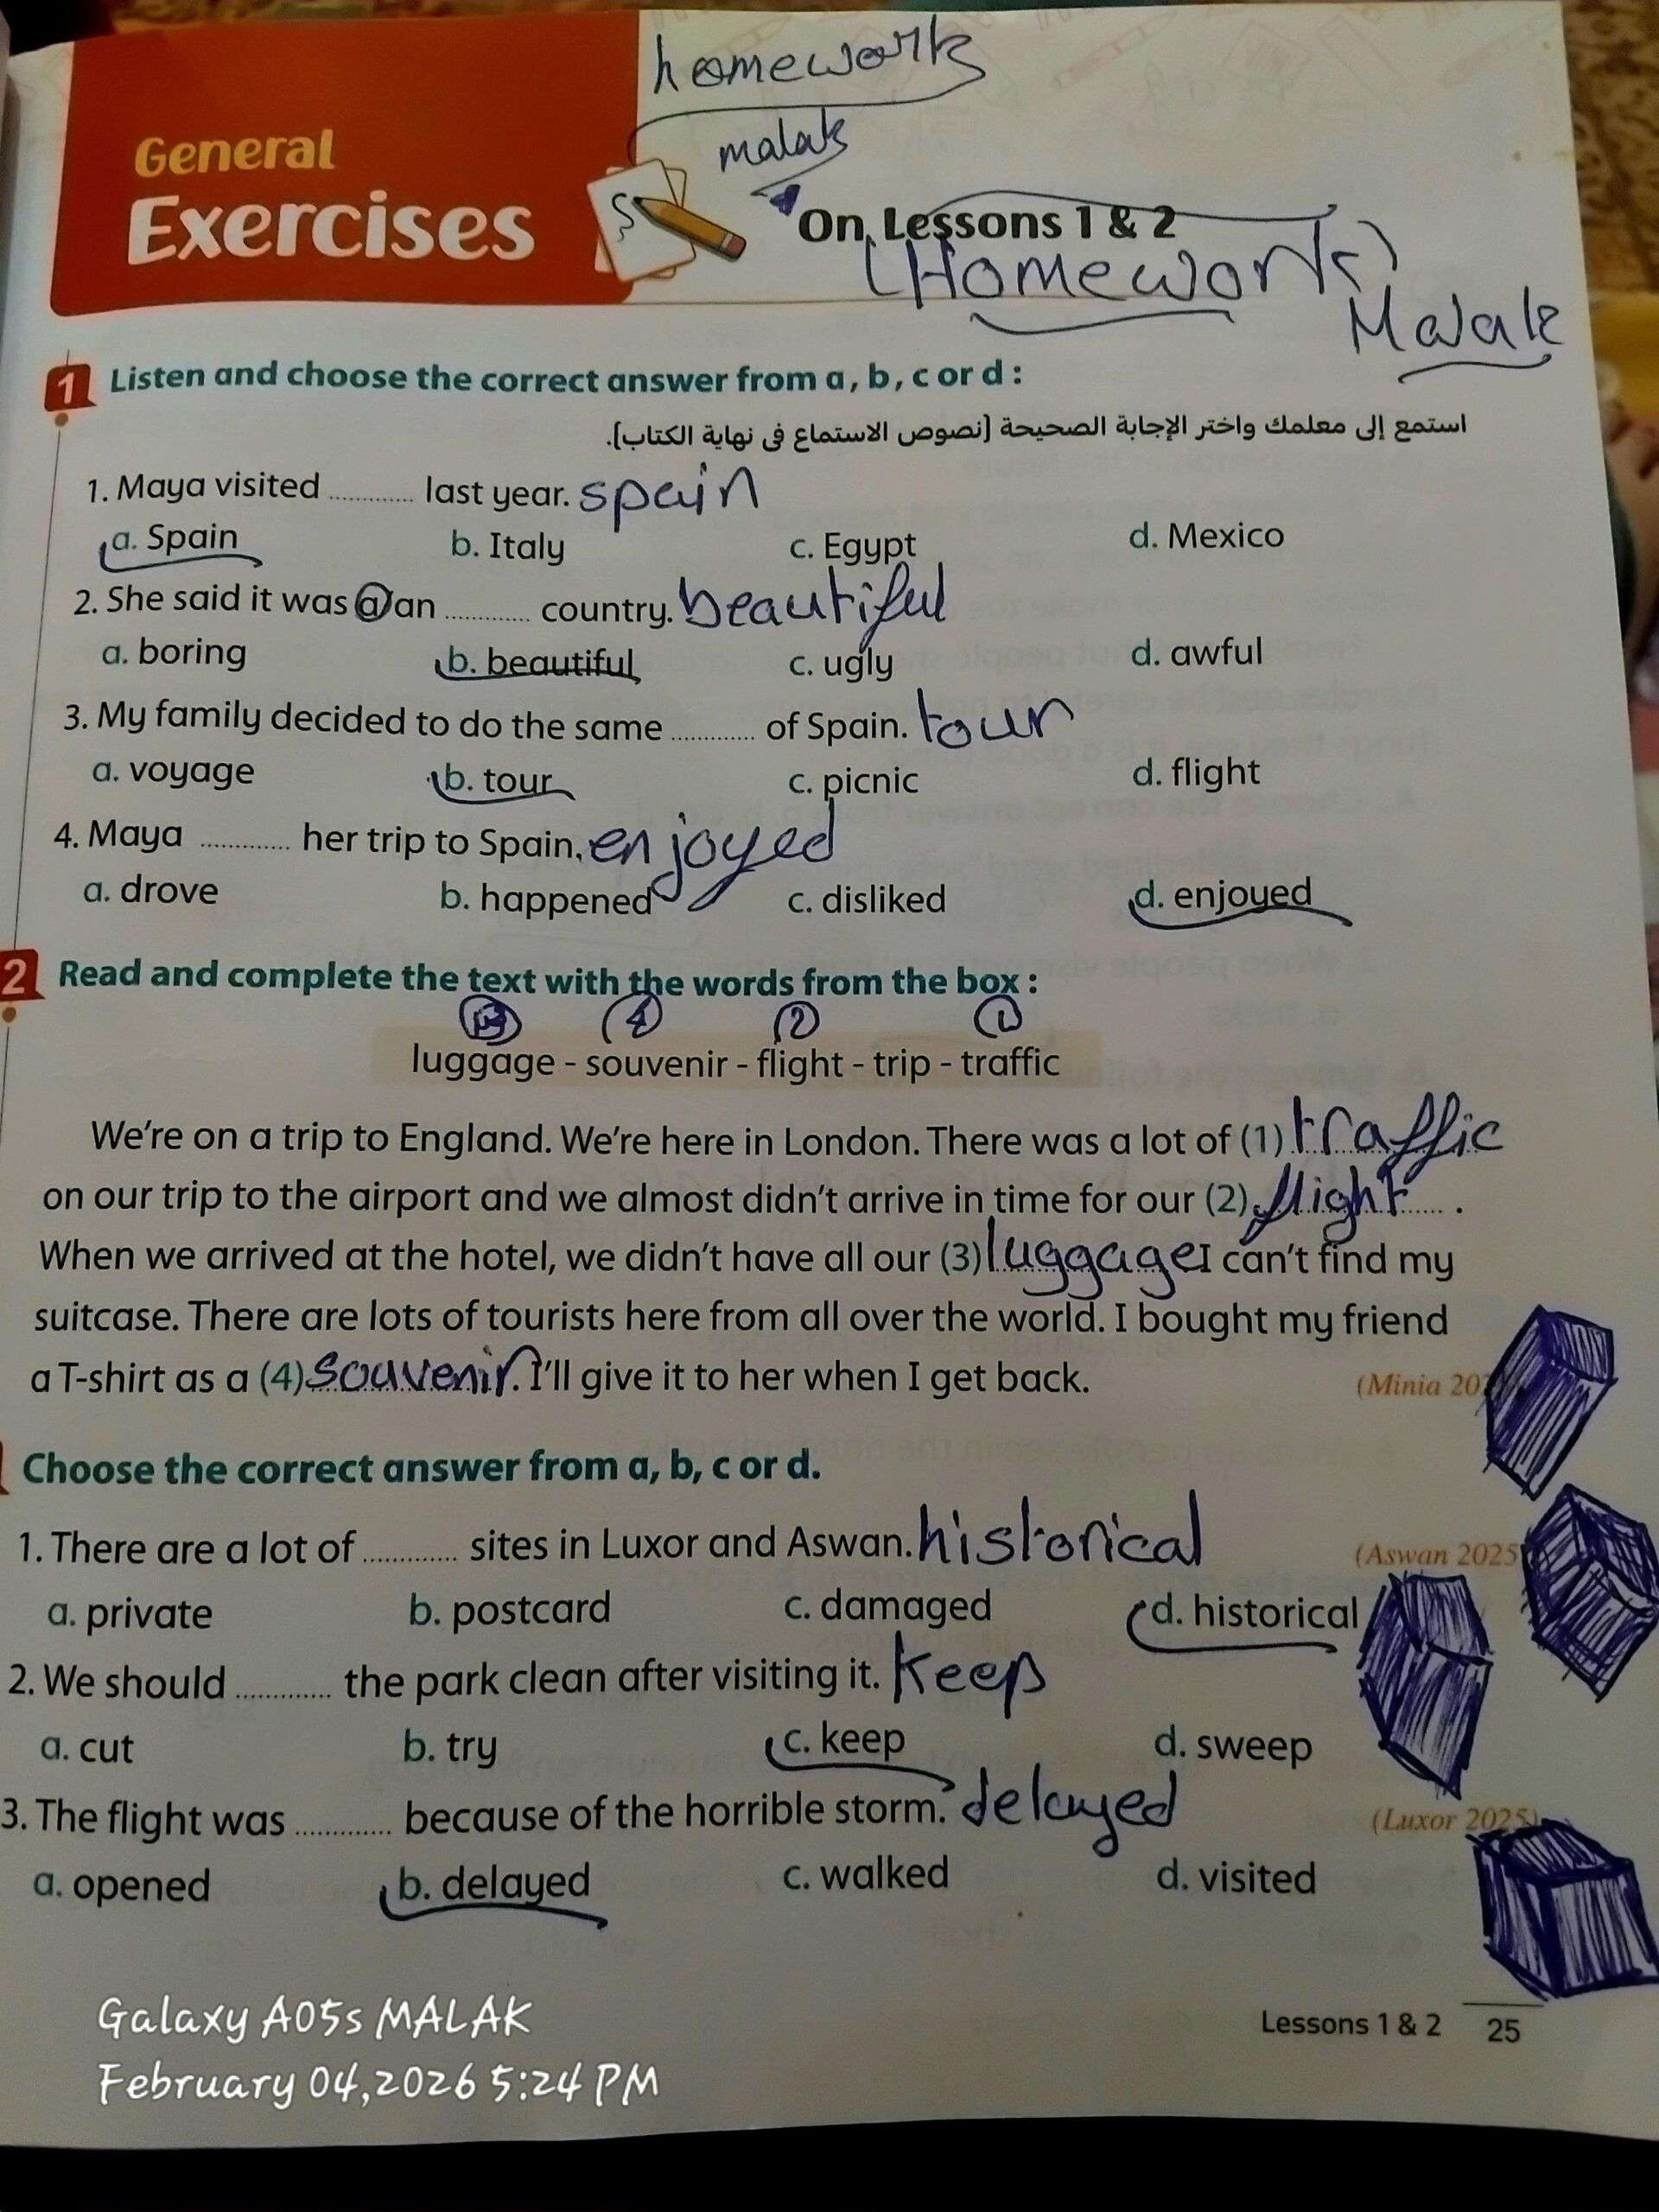 homework
malak
General
Exercises
On Lessons 1 & 2
(Homework)
Malak
1 Listen and choose the correct answer from a, b, c or d :
استمع إلى معلمك واختر الإجابة الصحيحة [نصوص الاستماع فى نهاية الكتاب].
1. Maya visited ............ last year. spain
a. Spain b. Italy c. Egypt d. Mexico
2. She said it was a/an ............ country. beautiful
a. boring b. beautiful c. ugly d. awful
3. My family decided to do the same ............ of Spain. tour
a. voyage b. tour c. picnic d. flight
4. Maya ............ her trip to Spain. enjoyed
a. drove b. happened c. disliked d. enjoyed
2 Read and complete the text with the words from the box :
4 2 1
luggage - souvenir - flight - trip - traffic
We're on a trip to England. We're here in London. There was a lot of (1) traffic
on our trip to the airport and we almost didn't arrive in time for our (2) flight .
When we arrived at the hotel, we didn't have all our (3) luggage I can't find my
suitcase. There are lots of tourists here from all over the world. I bought my friend
a T-shirt as a (4) souvenir. I'll give it to her when I get back. (Minia
Choose the correct answer from a, b, c or d.
1. There are a lot of ............ sites in Luxor and Aswan. historical (Aswan 2025
a. private b. postcard c. damaged d. historical
2. We should ............ the park clean after visiting it. Keep
a. cut b. try c. keep d. sweep
3. The flight was ............ because of the horrible storm. delayed (Luxor 2025)
a. opened b. delayed c. walked d. visited
Lessons 1 & 2 25
Galaxy A05s MALAK
February 04,2026 5:24 PM